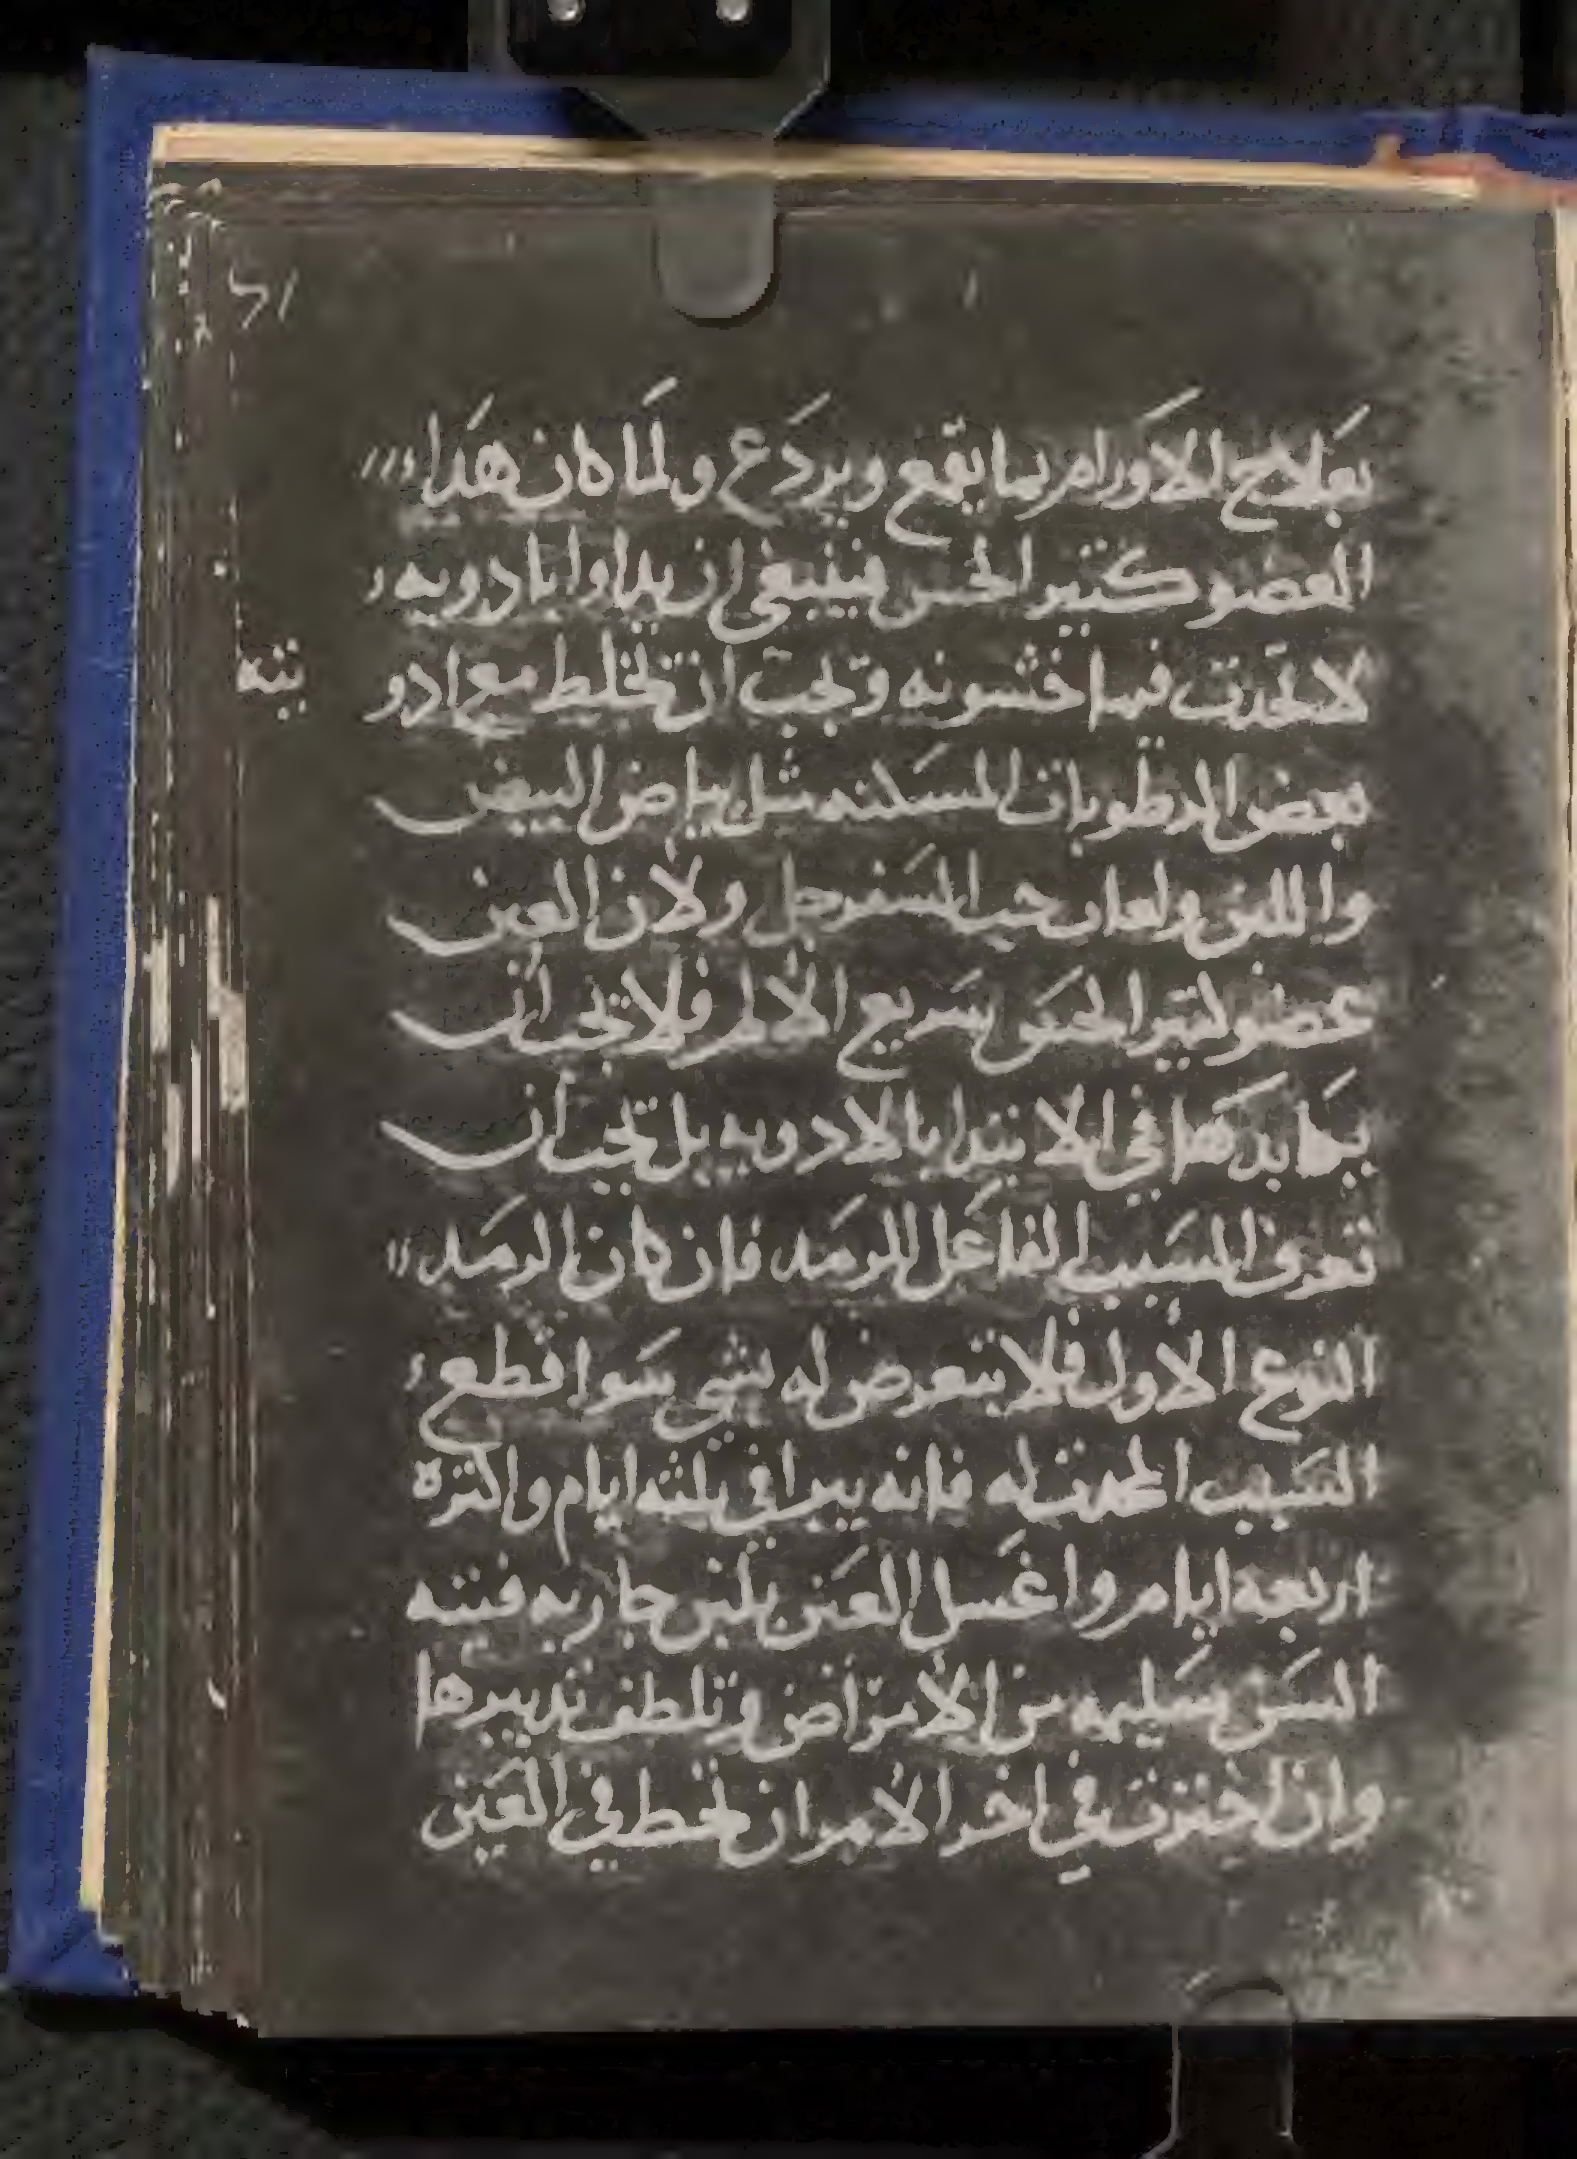 بعَلاج الاوَرام بما يقمع ويردَع ولمَا كان هَذا
العضو كثير الحس فينبغي ان يداوا بادويه
لا تحدث فيها خشونه وتجب ان تخلط مع ادو
يته
بعض الرطوبات المسَكنه مثل بياض البيض
واللبن ولعاب حب السَفرجل ولان العين
عضو كثير الحسَ سَريع الالم فلا تجب ان
بهَا بدَهَا في الابتدا بالادويه بل تجب ان
تعرف السَبب الفاعَل للرمَد فان كان الرمَد
النوع الاول فلا تتعرض له بشي سَوا قطع
السَبب المحدث له فانه يبرا في ثلثه ايام واكثره
اربعه ايام واغسَل العَين بلبن جاريه فتيه
السَن سَليمه من الامرَاض وتلطف تدبيرها
وان احتجت في اخر الامر ان تحط في العَين